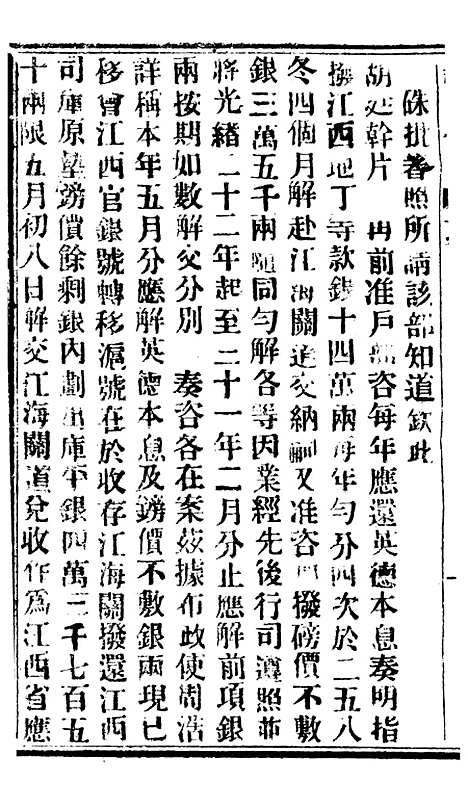 硃批著照所請該部知道欽此
胡廷幹片　再前准戶部咨每年應還英德本息奏明指
撥江西地丁等款銀十四萬兩每年勻分四次於二五八
冬四個月解赴江海關道交納嗣又准咨 撥磅價不敷
銀三萬五千兩隨同勻解各等因業經先後行司遵照並
將光緒二十二年起至二十一年二月分止應解前項銀
兩按期如數解交分別　奏咨各在案茲據布政使周浩
詳稱本年五月分應解英德本息及鎊價不敷銀兩現已
移會江西官銀號轉移滬號在於收存江海關撥還江西
司庫原墊鎊價餘剩銀內劃出庫平銀四萬三千七百五
十兩限五月初八日解交江海關道兌收作爲江西省應